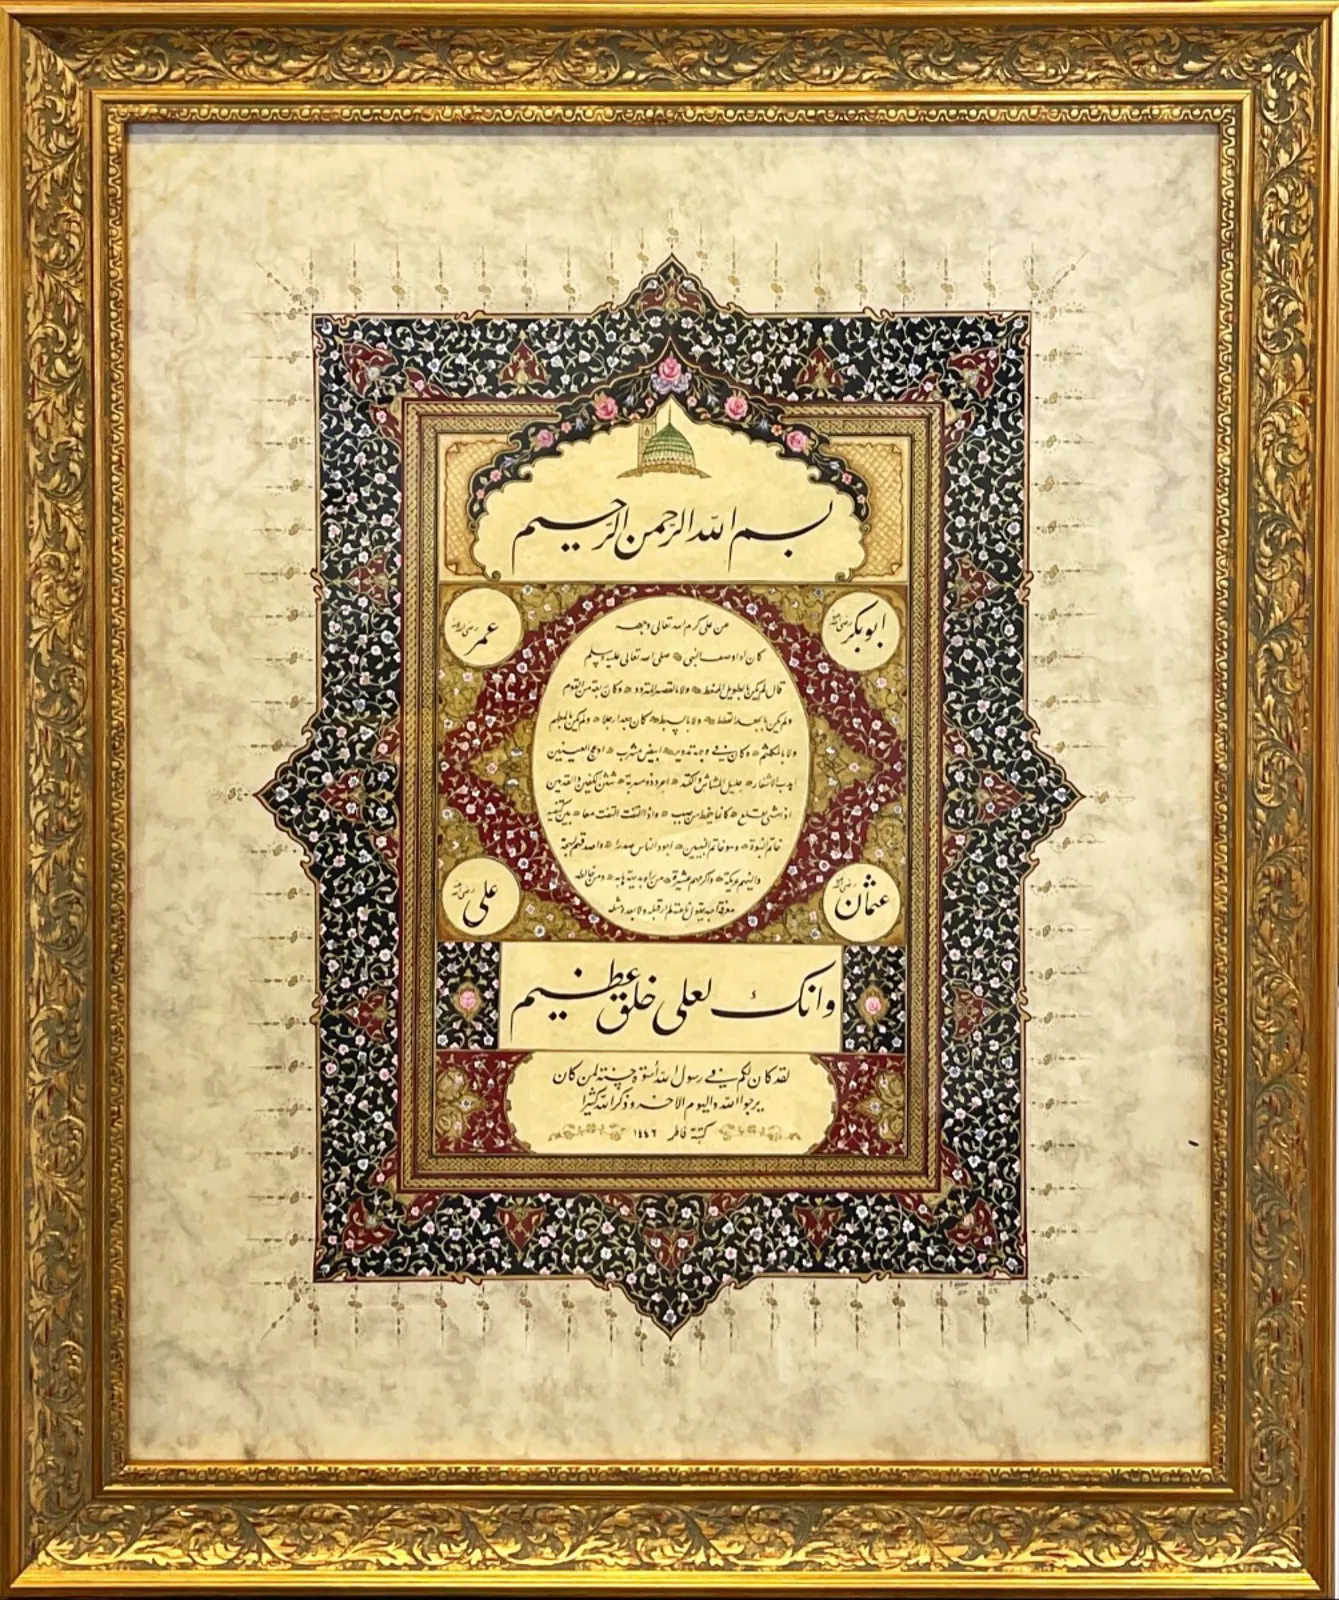 بسم الله الرحمن الرحيم
ابوبكر رضی الله عنه
عمر رضی الله عنه
عن علی کرم الله تعالی وجهه
کان اذا وصف النبی صلی الله تعالی علیه وسلم
قال لم یکن بالطویل الممغط ولا بالقصیر المتردد وکان ربعة من القوم
ولم یکن بالجعد القطط ولا بالسبط کان جعدا رجلا ولم یکن بالمطهم
ولا بالمکلثم وکان فی وجهه تدویر ابیض مشرب ادعج العینین
اهدب الاشفار جلیل المشاش والکتد اجرد ذو مسربة شثن الکفین والقدمین
اذا مشی تقلع کانما ینحط من صبب واذا التفت التفت معا بین کتفیه
خاتم النبوة وهو خاتم النبیین اجود الناس صدرا واصدقهم لهجة
والینهم عریکة واکرمهم عشیرة من راه بدیهة هابه ومن خالطه
معرفة احبه یقول ناعته لم ار قبله ولا بعده مثله
عثمان رضی الله عنه
علی رضی الله عنه
وانك لعلی خلق عظیم
لقد کان لکم فی رسول الله اسوة حسنة لمن کان
یرجوا الله والیوم الاخر وذکر الله کثیرا
کتبته فاطمه ١٤٤٦